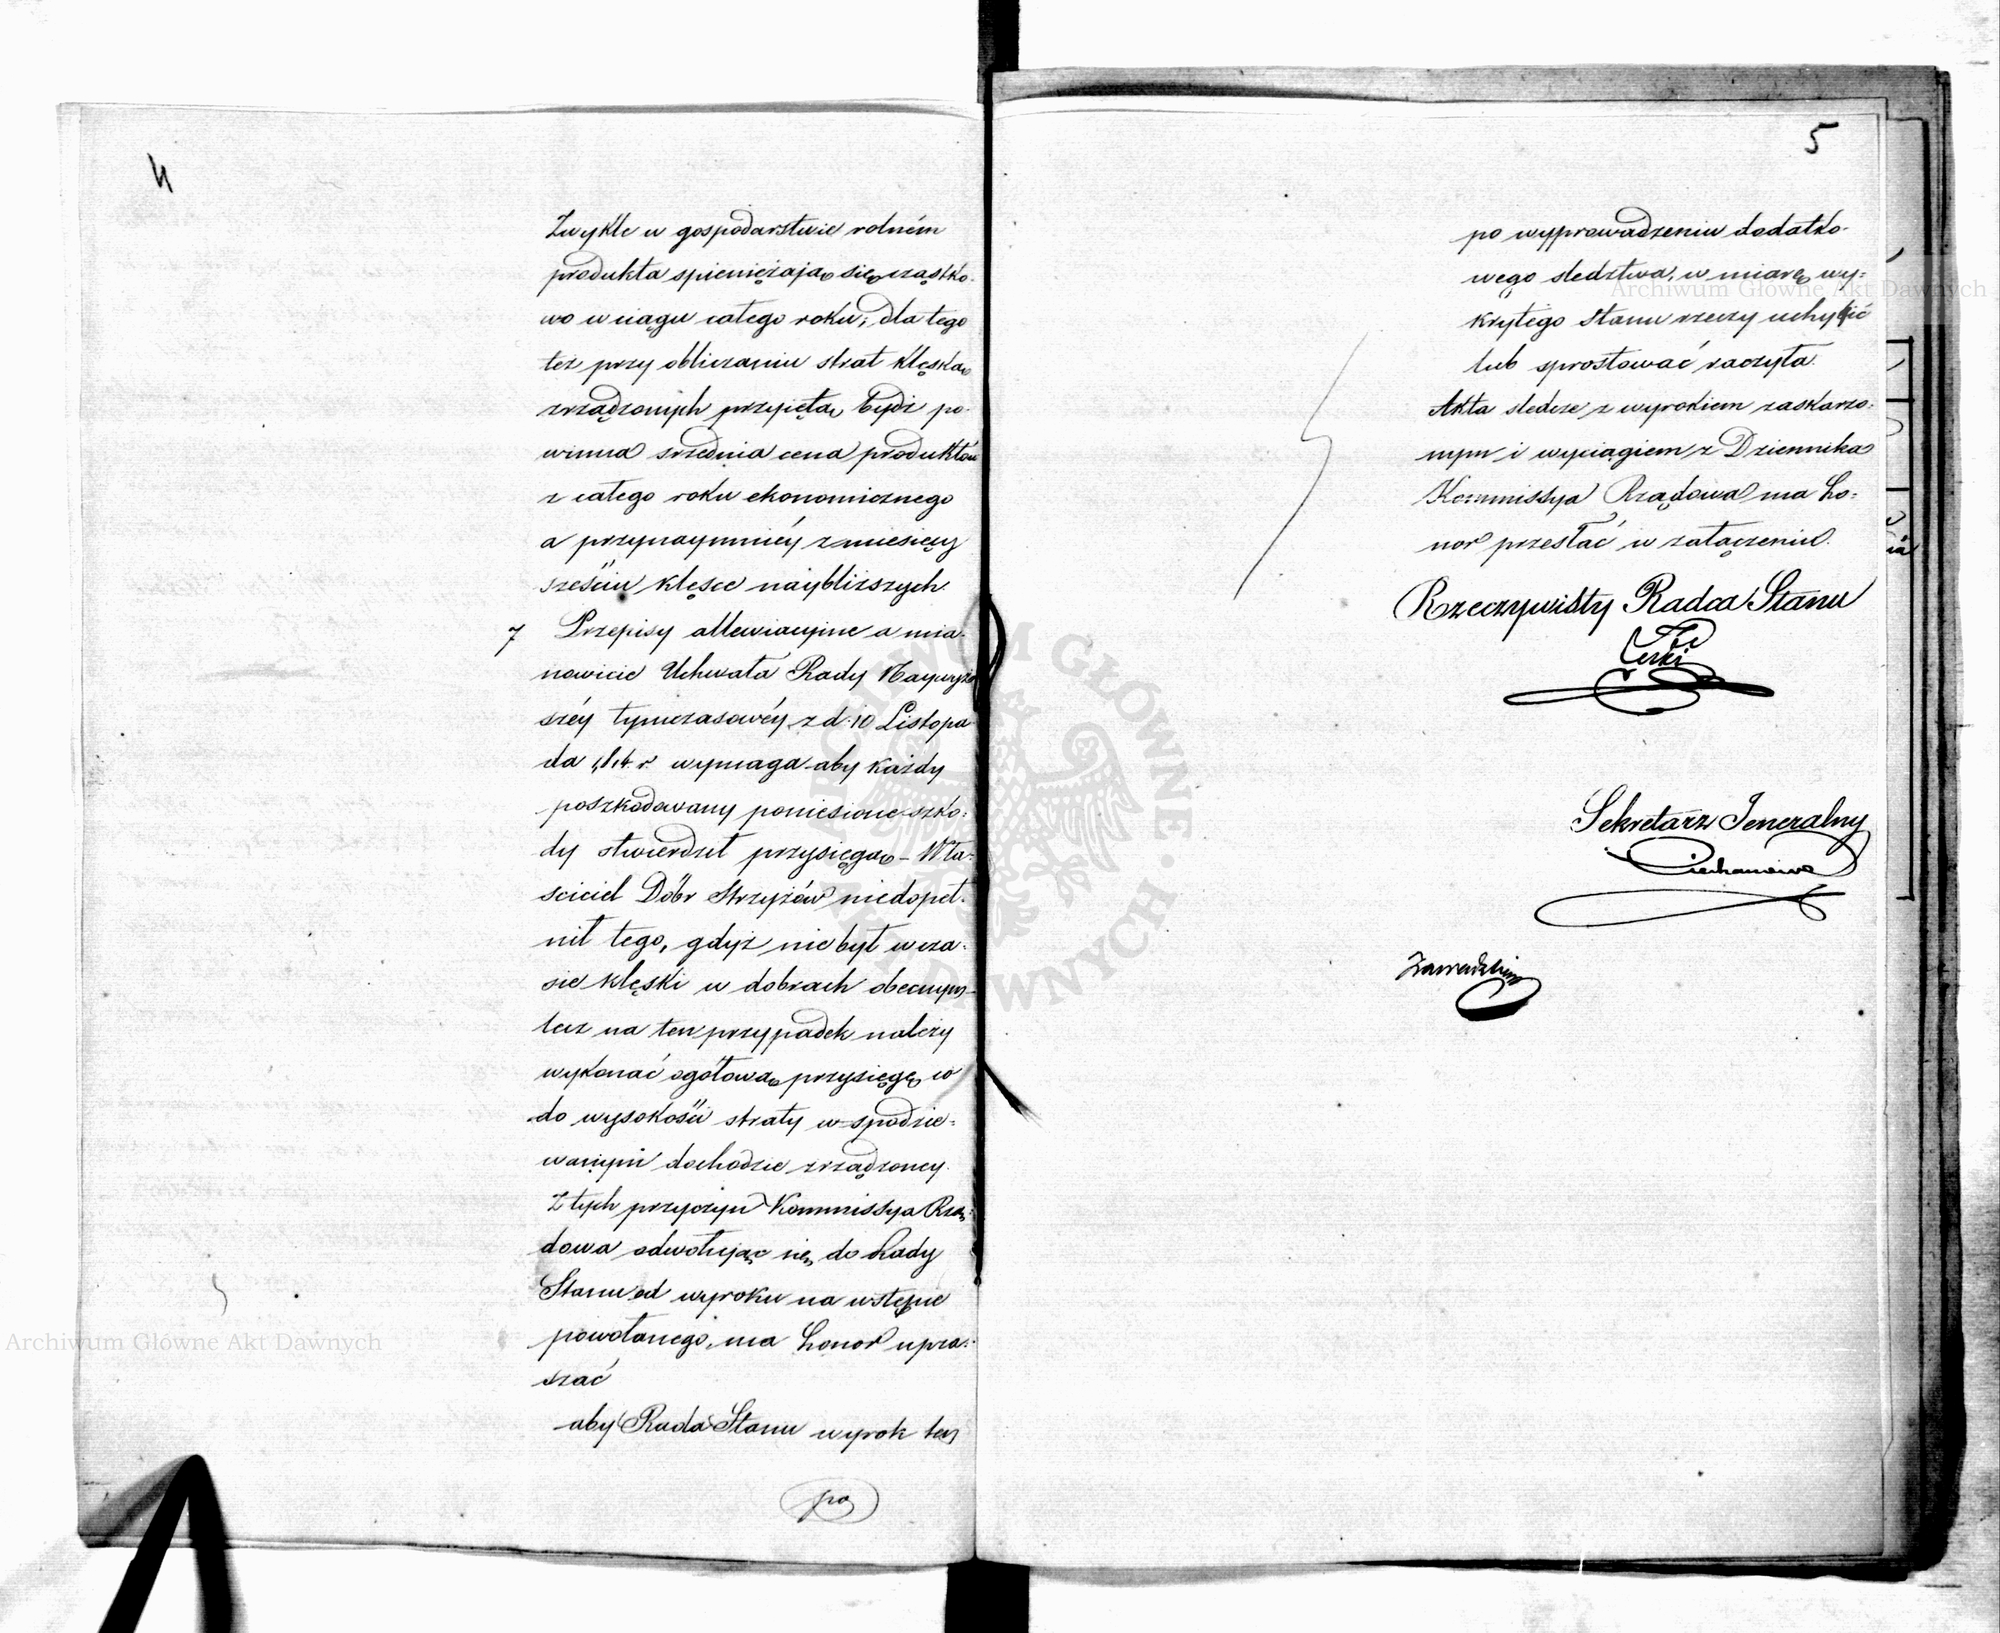 4
Zwykle w gospodarstwie rolném
produkta spieniężają się cząstko-
wo w ciągu całego roku; dla tego
też przy obliczaniu strat klęską
zrządzonych przyjętą bydź po-
winna srzednia cena produktów
z całego roku ekonomicznego
a przynaymniéy z miesięcy
sześciu klęsce naybliższych.
7 Przepisy allewiacyine a mia-
nowicie Uchwała Rady Naywyż-
széy tymczasowéy z d. 10 Listopa-
da 1814 r. wymaga aby każdy
poszkodowany poniesione szko-
dy stwierdził przysięgą – Wła-
sciciel Dóbr Strzyżów niedopeł-
nił tego, gdyż nie był w cza-
sie klęski w dobrach obecnym
lecz na ten przypadek należy
wykonać ogółową przysięgę co
do wysokości straty w spodzie-
wanym dochodzie zrządzoney.
Z tych przyczyn Kommissya Rzą-
dowa odwołując się do Rady
Stanu od wyroku na wstępie
powołanego, ma honor upra-
szać
aby Rada Stanu wyrok ten
po
5
po wyprowadzeniu dodatko-
wego sledztwa, w miarę wy-
krytego stanu rzeczy uchylić
lub sprostować raczyła.
Akta sledcze z wyrokiem zaskarżo-
nym i wyciągiem z Dziennika
Kommissya Rządowa ma ho-
nor przesłać w załączeniu.
Rzeczywisty Radca Stanu
Sekretarz Jeneralny
Archiwum Główne Akt Dawnych
Archiwum Główne Akt Dawnych
ARCHIWUM GŁÓWNE AKT DAWNYCH